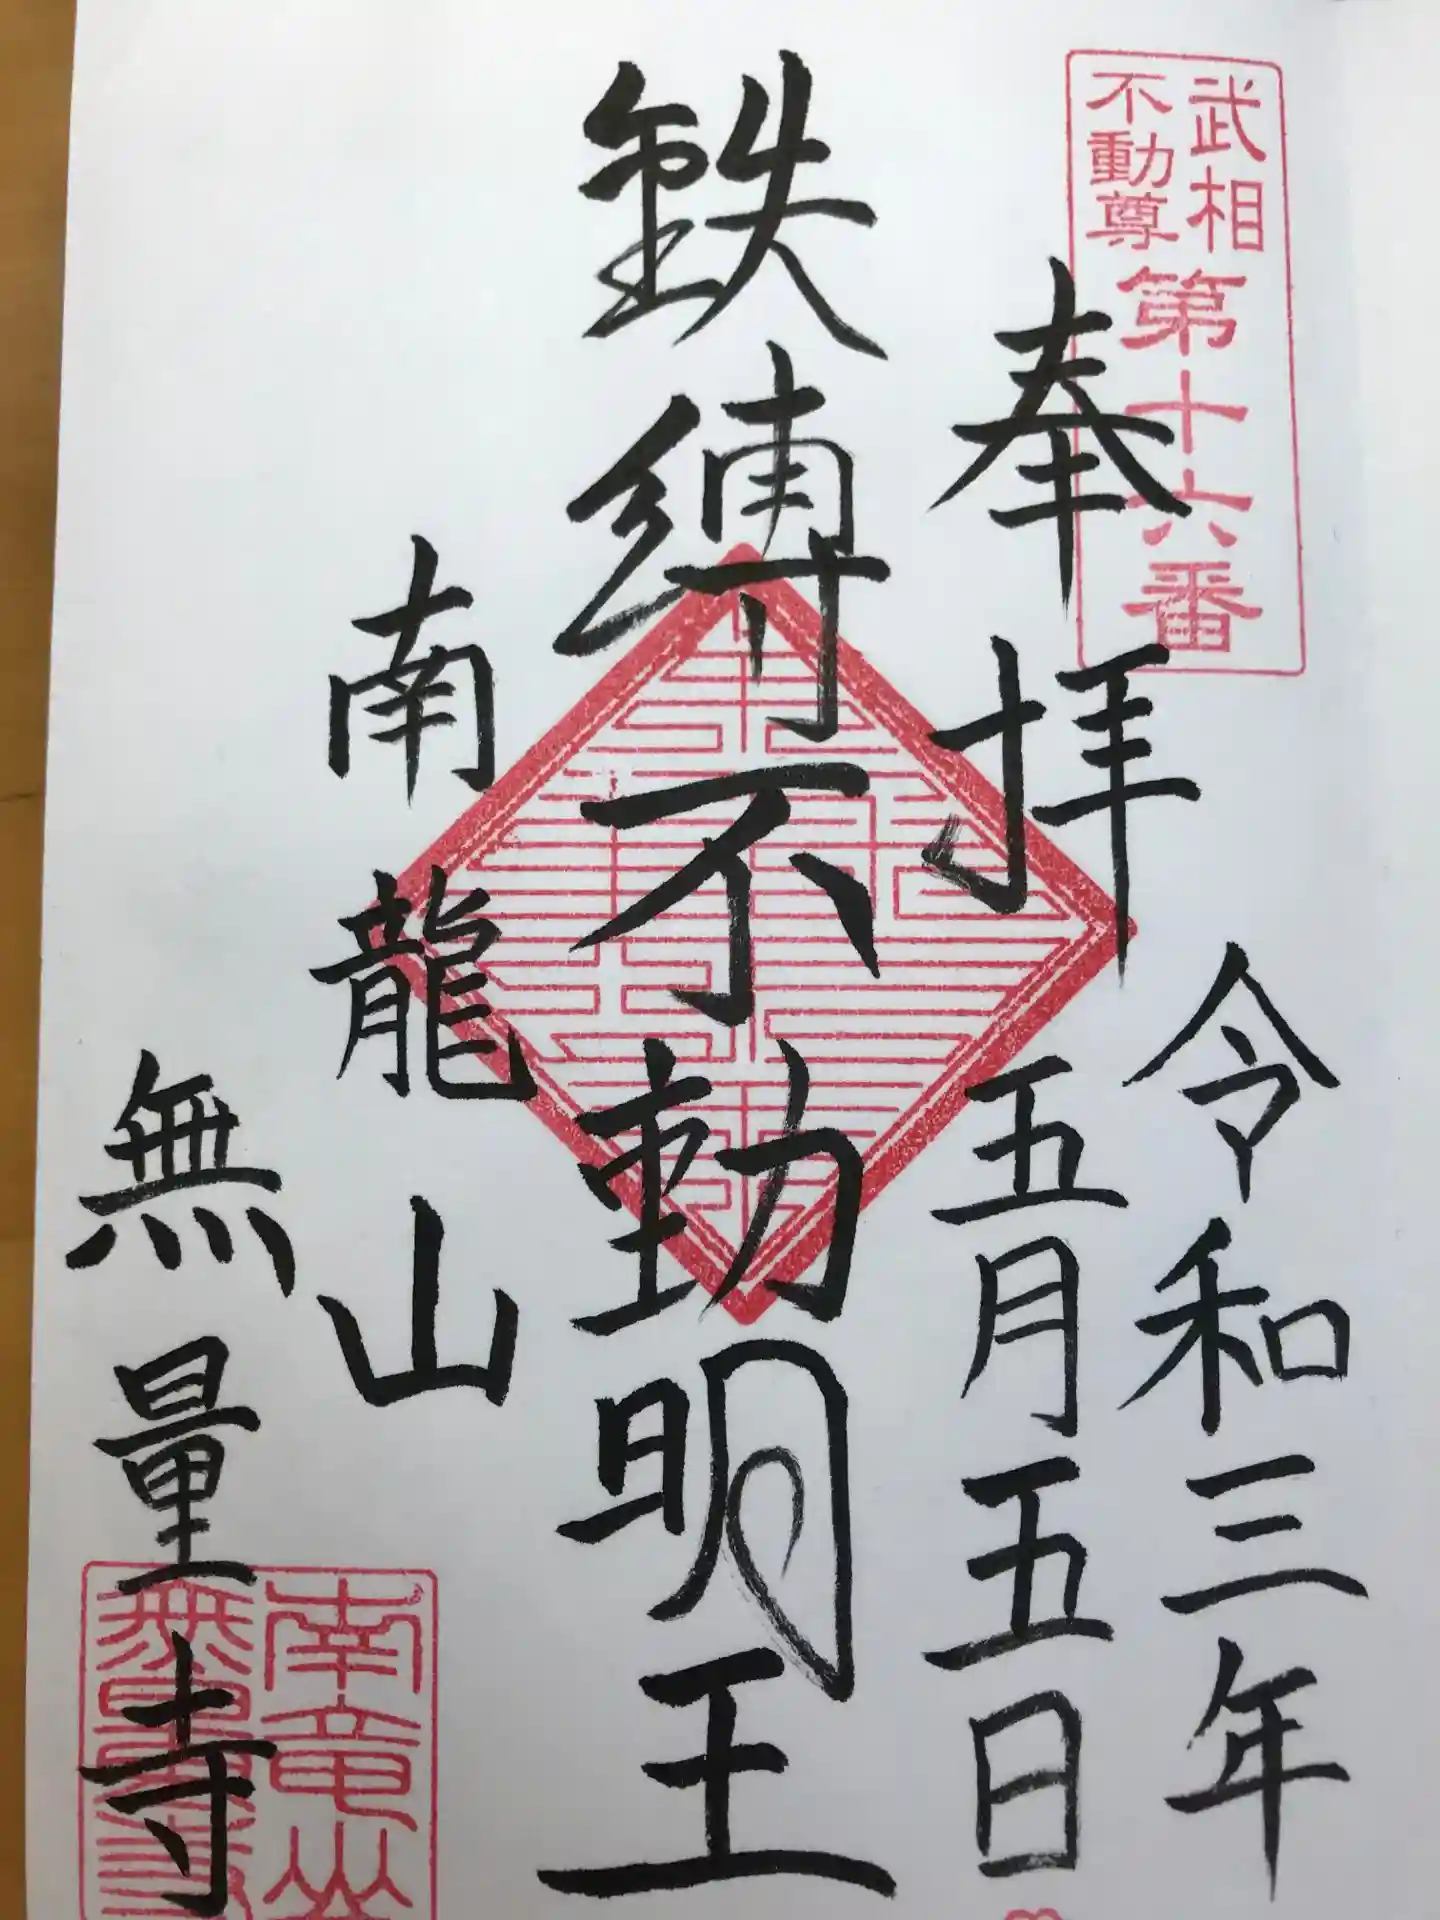 武相
不動尊
第十六番
奉拝
令和三年
五月五日
鉄縛不動明王
南龍山
無量寺
南竜山
無量寺